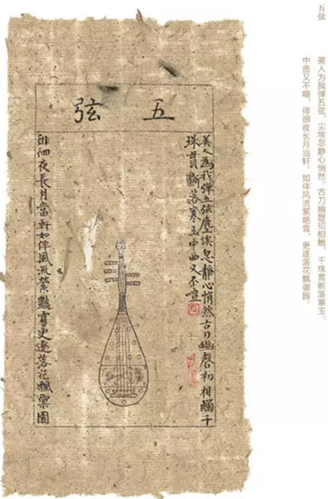 五弦
美人为我弹五弦，尘埃忽静心悄然。古刀幽磬初相触，千珠贯断落寒玉。
中曲又不喧，徘徊夜长月当轩。如伴风流萦艳雪，更逐落花飘御园。
五弦
美人為我弹五弦塵埃忽静心悄然古刀幽磬初相觸千
珠貫斷落寒玉中曲又不喧
徘徊夜長月當軒如伴風流縈艷雪更逐落花飄園